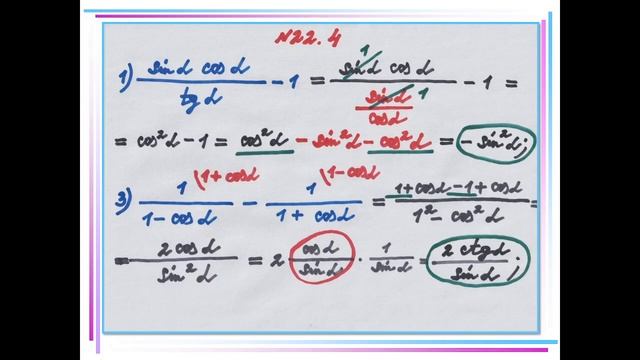 N22.4
1) (sin α cos α)/(tg α) − 1 = (sin α^1 cos α)/((sin α^1)/(cos α)) − 1 =
= cos²α − 1 = cos²α − sin²α − cos²α = −sin²α;
3) 1/(1 − cos α) \1 + cos α − 1/(1 + cos α) \1 − cos α = (1 + cos α − 1 + cos α)/(1² − cos²α) =
= (2 cos α)/(sin²α) = 2 (cos α)/(sin α) · 1/(sin α) = (2 ctg α)/(sin α);